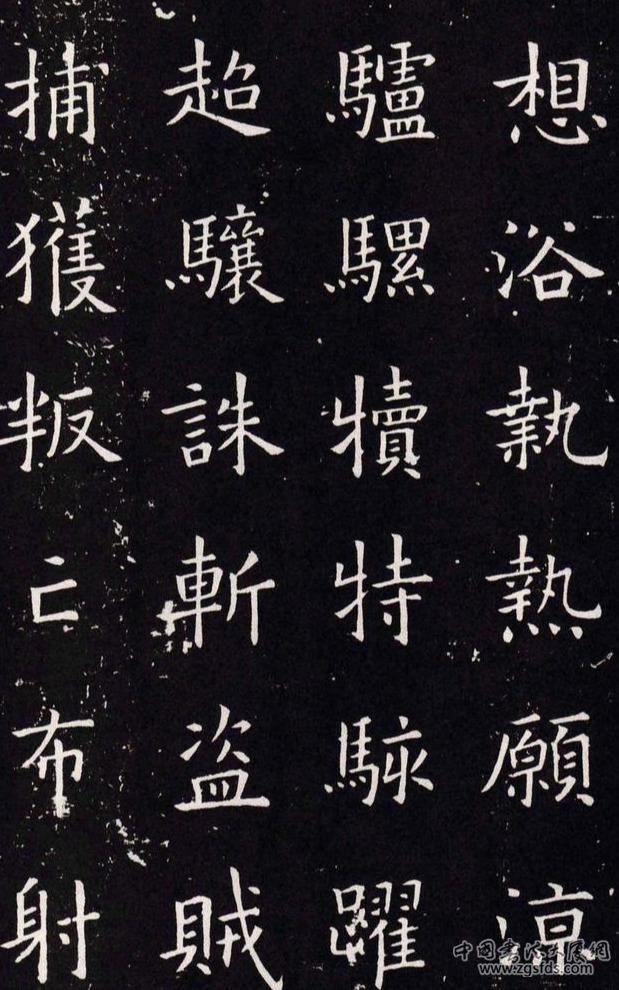 想浴執熱願涼
驢騾犢特駭躍
超驤誅斬盜賊
捕獲叛亡布射
中国书法大展網
www.zgsfds.com